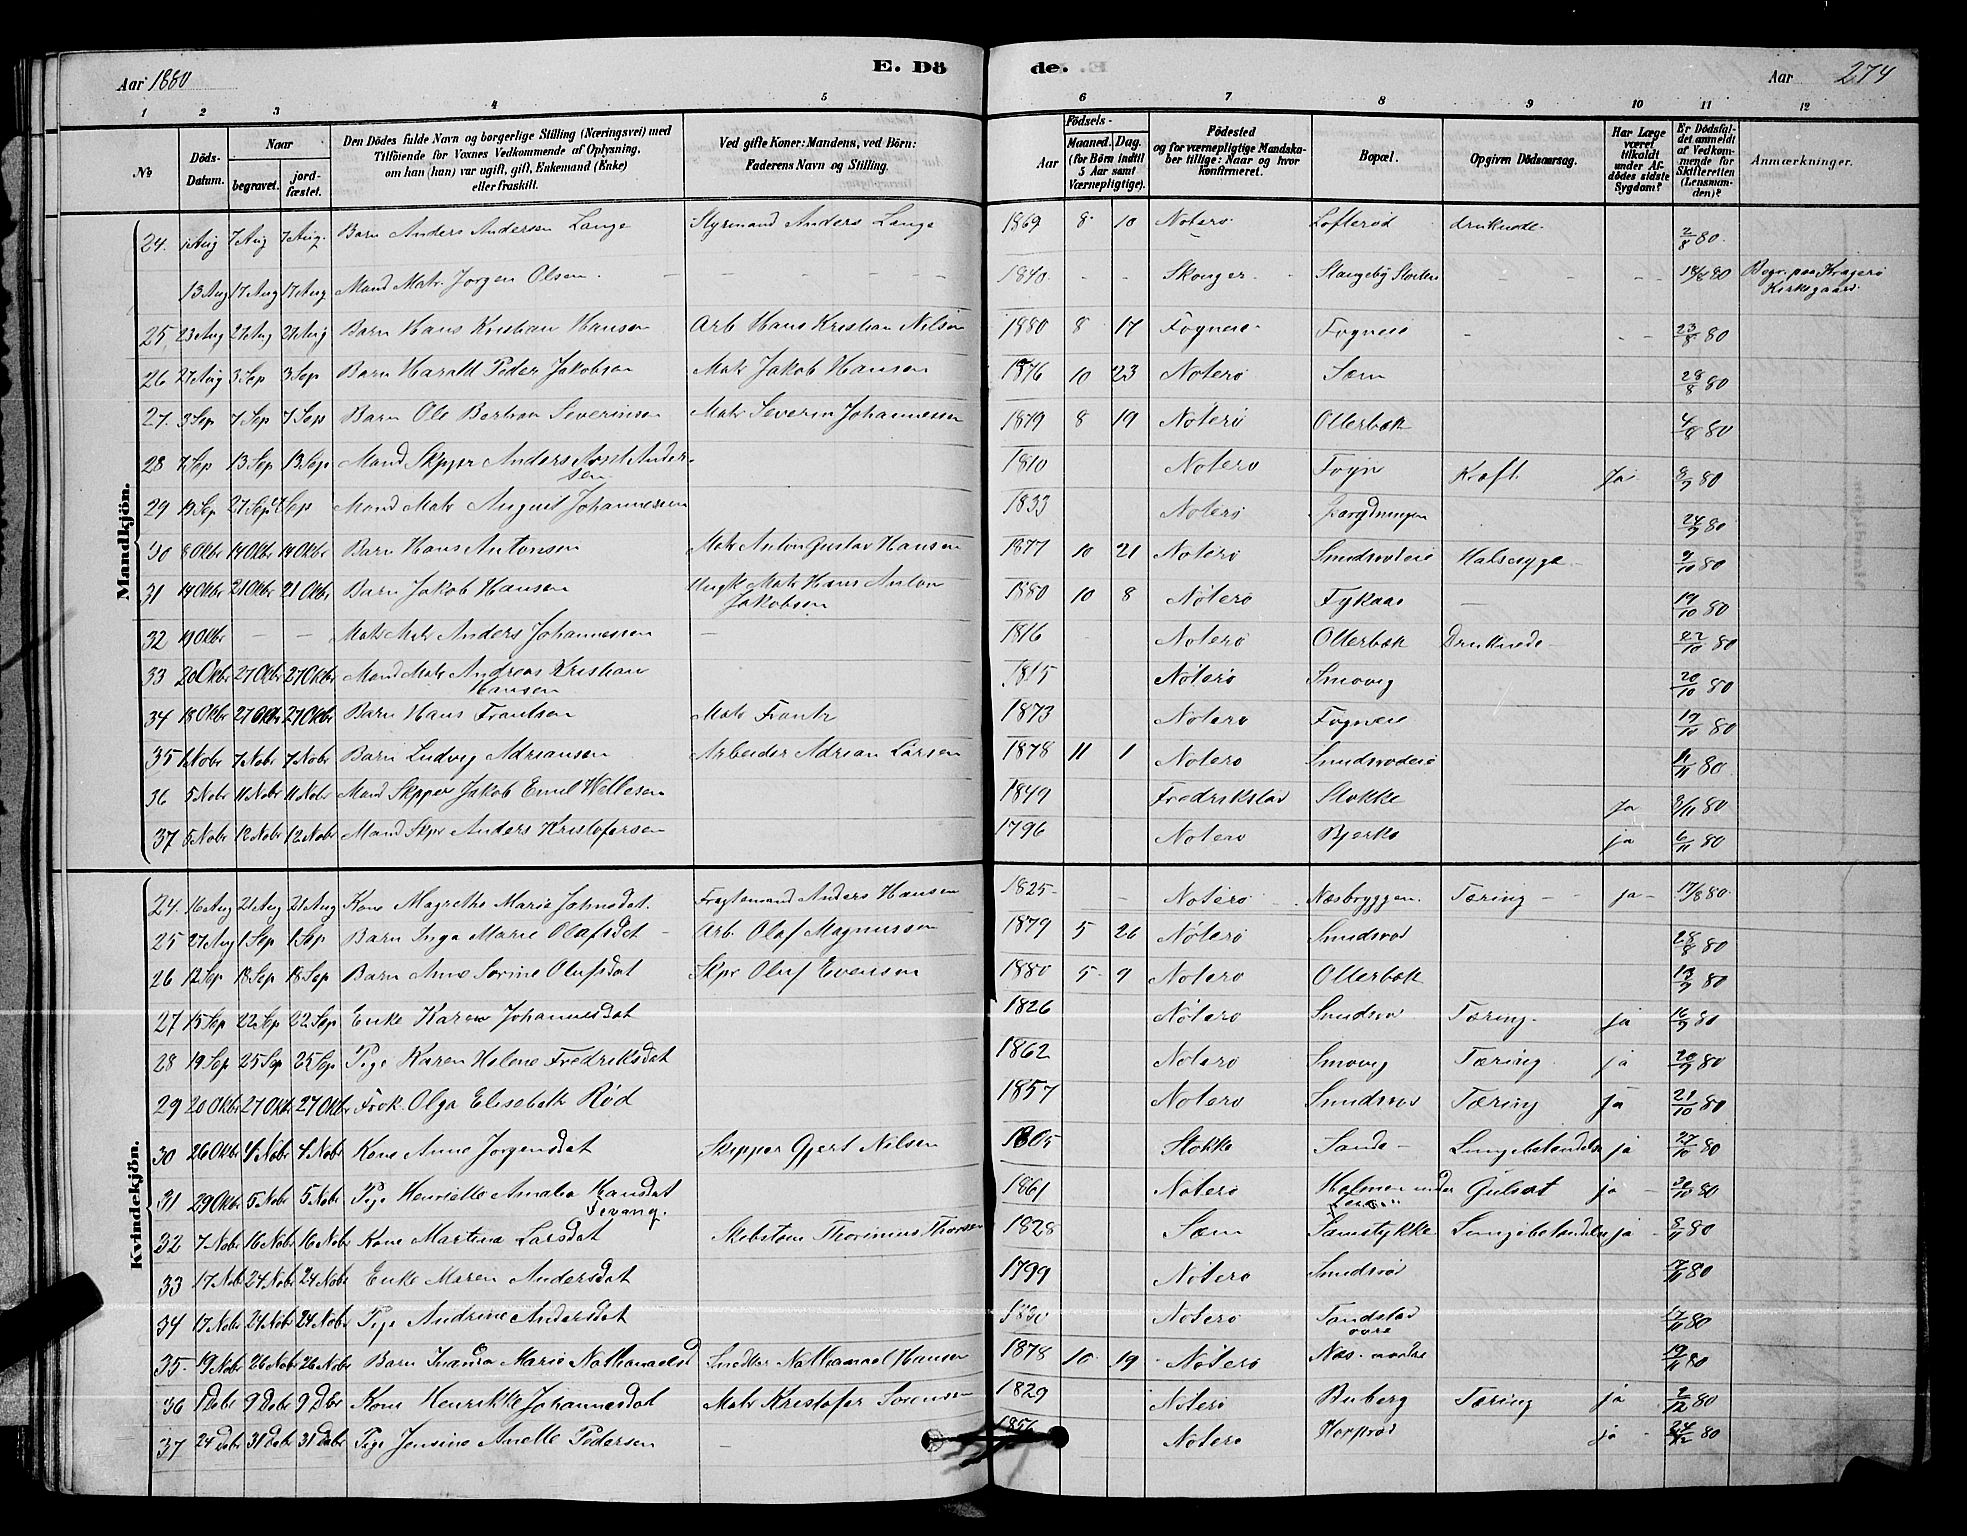 Aar 1880
E. Dö
de.
Aar 274
1 2 3 4 5 6 7 8 9 10 11 12
No
Döds-Datum.
Naar
begravet.
jord-fæstet.
Den Dödes fulde Navn og borgerlige Stilling (Næringsvei) med
Tilföiende for Voxnes Vedkommende af Oplysning,
om han (hun) var ugift, gift, Enkemand (Enke)
eller fraskilt.
Ved gifte Koner: Mandens, ved Börn:
Faderens Navn og Stilling.
Aar
Födsels-
Maaned. Dag.
(for Börn indtil
5 Aar samt
Værnepligtige).
Födested
og for værnepligtige Mandska-
ber tillige: Naar og hvor
konfirmeret.
Bopæl.
Opgiven Dödsaarsag.
Har Læge
været
tilkaldt
under Af-
dödes sidste
Sygdom?
Er Dödsfal-
det anmeldt
af Vedkom-
mende for
Skifteretten
(Lensman-
den)?
Anmærkninger.
Mandkjön.
24. 1 Aug 7 Aug 7 Aug. Barn Anders Andersen Lange Styrmand Anders Lange 1869 8 10 Noterø Lofterød druknede. 2/8 80.
13 Aug 17 Aug 17 Aug Mand Matr. Jorgen Olsen. — — — — 1840 - - Skouger - Stangeby - - - 18/8 80 Begr. paa Kragerø
Kirkegaard.
25 23 Aug 27 Aug 27 Aug Barn Hans Kristian Hansen Arb Hans Kristian Nilsen 1880 8 17 Fogneie Fogneie - - - 23/8 80
26 27 Aug 3 Sep 3 Sep Barn Harald Peder Jakobsen Matr Jakob Hansen 1876 10 23 Noterø Sem 28/8 80
27. 3 Sep 7 Sep 7 Sep Barn Ole Severinsen Matr Severin Johannessen 1879 8 19 Noterø Ollerbok 80
28 7 Sep 13 Sep 13 Sep Mand Skpr Anders Ander-
sen 1810 Noterø Fogn Kræft. Ja 8/9 80
29 19 Sep 27 Sep Mand Matr August Johannessen 1833 Noterø 24/9 80
30 8 Oktbr 14 Oktbr 14 Oktbr Barn Hans Antonsen Matr Anton Gustav Hansen 1877 10 21 Noterø Smidsrodeie Halsesyge 9/10 80
31 14 Oktbr 21 Oktbr 21 Oktbr Barn Jakob Hansen Ungk Matr Hans Anton
Jakobsen 1880 10 8 Nøterø Fykaas — 19/10 80
32 19 Oktbr — — Matr Anders Johannessen — 1816 Noterø Ollerbok Druknede 22/10 80
33 20 Oktbr 27 Oktbr 27 Oktbr Mand Matr Andreas Kristian
Hansen 1815 Nøterø Smovig 20/10 80
34 18 Oktbr 27 Oktbr 27 Oktbr Barn Hans Frantsen Matr Frantz 1873 Noterø Fogneie 19/10 80
35 1 Nobr 7 Nobr 7 Nobr Barn Ludvig Adriansen Arbeider Adrian Larsen 1878 11 1 Noterø Smidsrodeie 80
36 5 Nobr 11 Nobr 11 Nobr Mand Skpper Jakob Emil Wellesen 1849 Fredrikstad Stokke Ja 8/11 80
37 5 Nobr 12 Nobr 12 Nobr Mand Skpr Anders Kristofersen 1796 Noterø Bjerkø ja 6/11 80
Kvindekjön.
24. 16 Aug 21 Aug 21 Aug Kone Magrethe Marie Johnsdat. Fragtemand Anders Hansen 1825 - - Noterø Næsbryggen. Tæring — ja - 17/8 80
25 27 Aug 1 Sep 1 Sep Barn Inga Marie Olafsdat - Arb Olaf Magnussen 1879 5 26 Nøterø Smidsrod 28/8 80
26 12 Sep 18 Sep 18 Sep Barn Anne Sorine Olufsdat Skpr Oluf Evensen 1880 5 9 Noterø Ollerbok 80
27 15 Sep 22 Sep 22 Sep Enke Karen Johannesdat 1826 Nøterø Smidsrod Tæring. ja 16/9 80
28 19 Sep 25 Sep 25 Sep Pige Karen Helene Fredriksdat 1862 Noterø Smovig Tæring. ja 20/9 80
29 20 Oktbr 27 Oktbr 27 Oktbr Frøk. Olga Elisabeth Rød 1857 Noterø Smidsrod Tæring ja 21/10 80
30 26 Oktbr 4 Nobr 4 Nobr Kone Anne Jorgensdat Skipper Gjert Nilsen 1805 Stokke Sande — Lungebetændelse ja 27/10 80
31 29 Oktbr 5 Nobr 5 Nobr Pige Henriette Amalia Hansdat
Fevang. 1861 Nøterø Holmen under Gulsot ja - 30/10 80
32 7 Nobr 16 Nobr 16 Nobr Kone Martine Larsdat Skibstøm Thorinius Thorsen 1828 Sem Samstykke Lungebetændelse ja - 8/11 80
33 17 Nobr 24 Nobr 24 Nobr Enke Maren Andersdat 1799 Nøterø Smidsrød 80
34 17 Nobr 24 Nobr 24 Nobr Pige Andrine Andersdat Noterø Tandstad
ovre 17/11 80
35. 19 Nobr 26 Nobr 26 Nobr Barn Marie Nathanaelsd Snedker Nathanael Hansen 1878 10 19 Nøterø Næs. nordre 19/11 80
36 1 Debr 9 Debr 9 Debr Kone Henrikke Johannesdat Matr Kristofer Sorensen 1829 Nøterø Buberg Tæring ja 2/12 80
37 24 Debr 31 Debr 31 Debr Pige Jensine Anette Pedersen — 1856 Noterø ja - 24/12 80